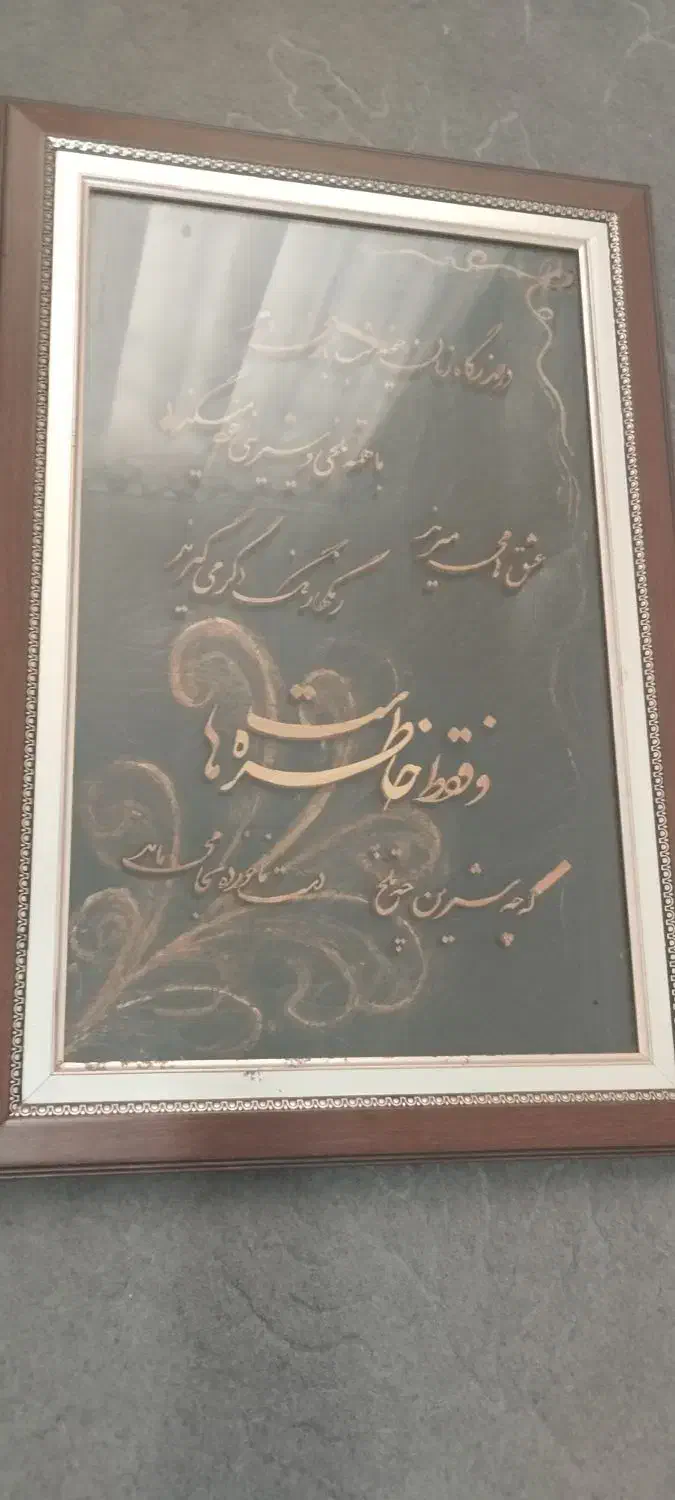 در گذرگاه زمان خیمه شب بازی دهر
با همه تلخی و شیرینی خود میگذرد
عشق ها می میرند
رنگها رنگ دگر می گیرند
و فقط خاطره هاست
که چه شیرین چه تلخ
دست ناخورده بجا می ماند